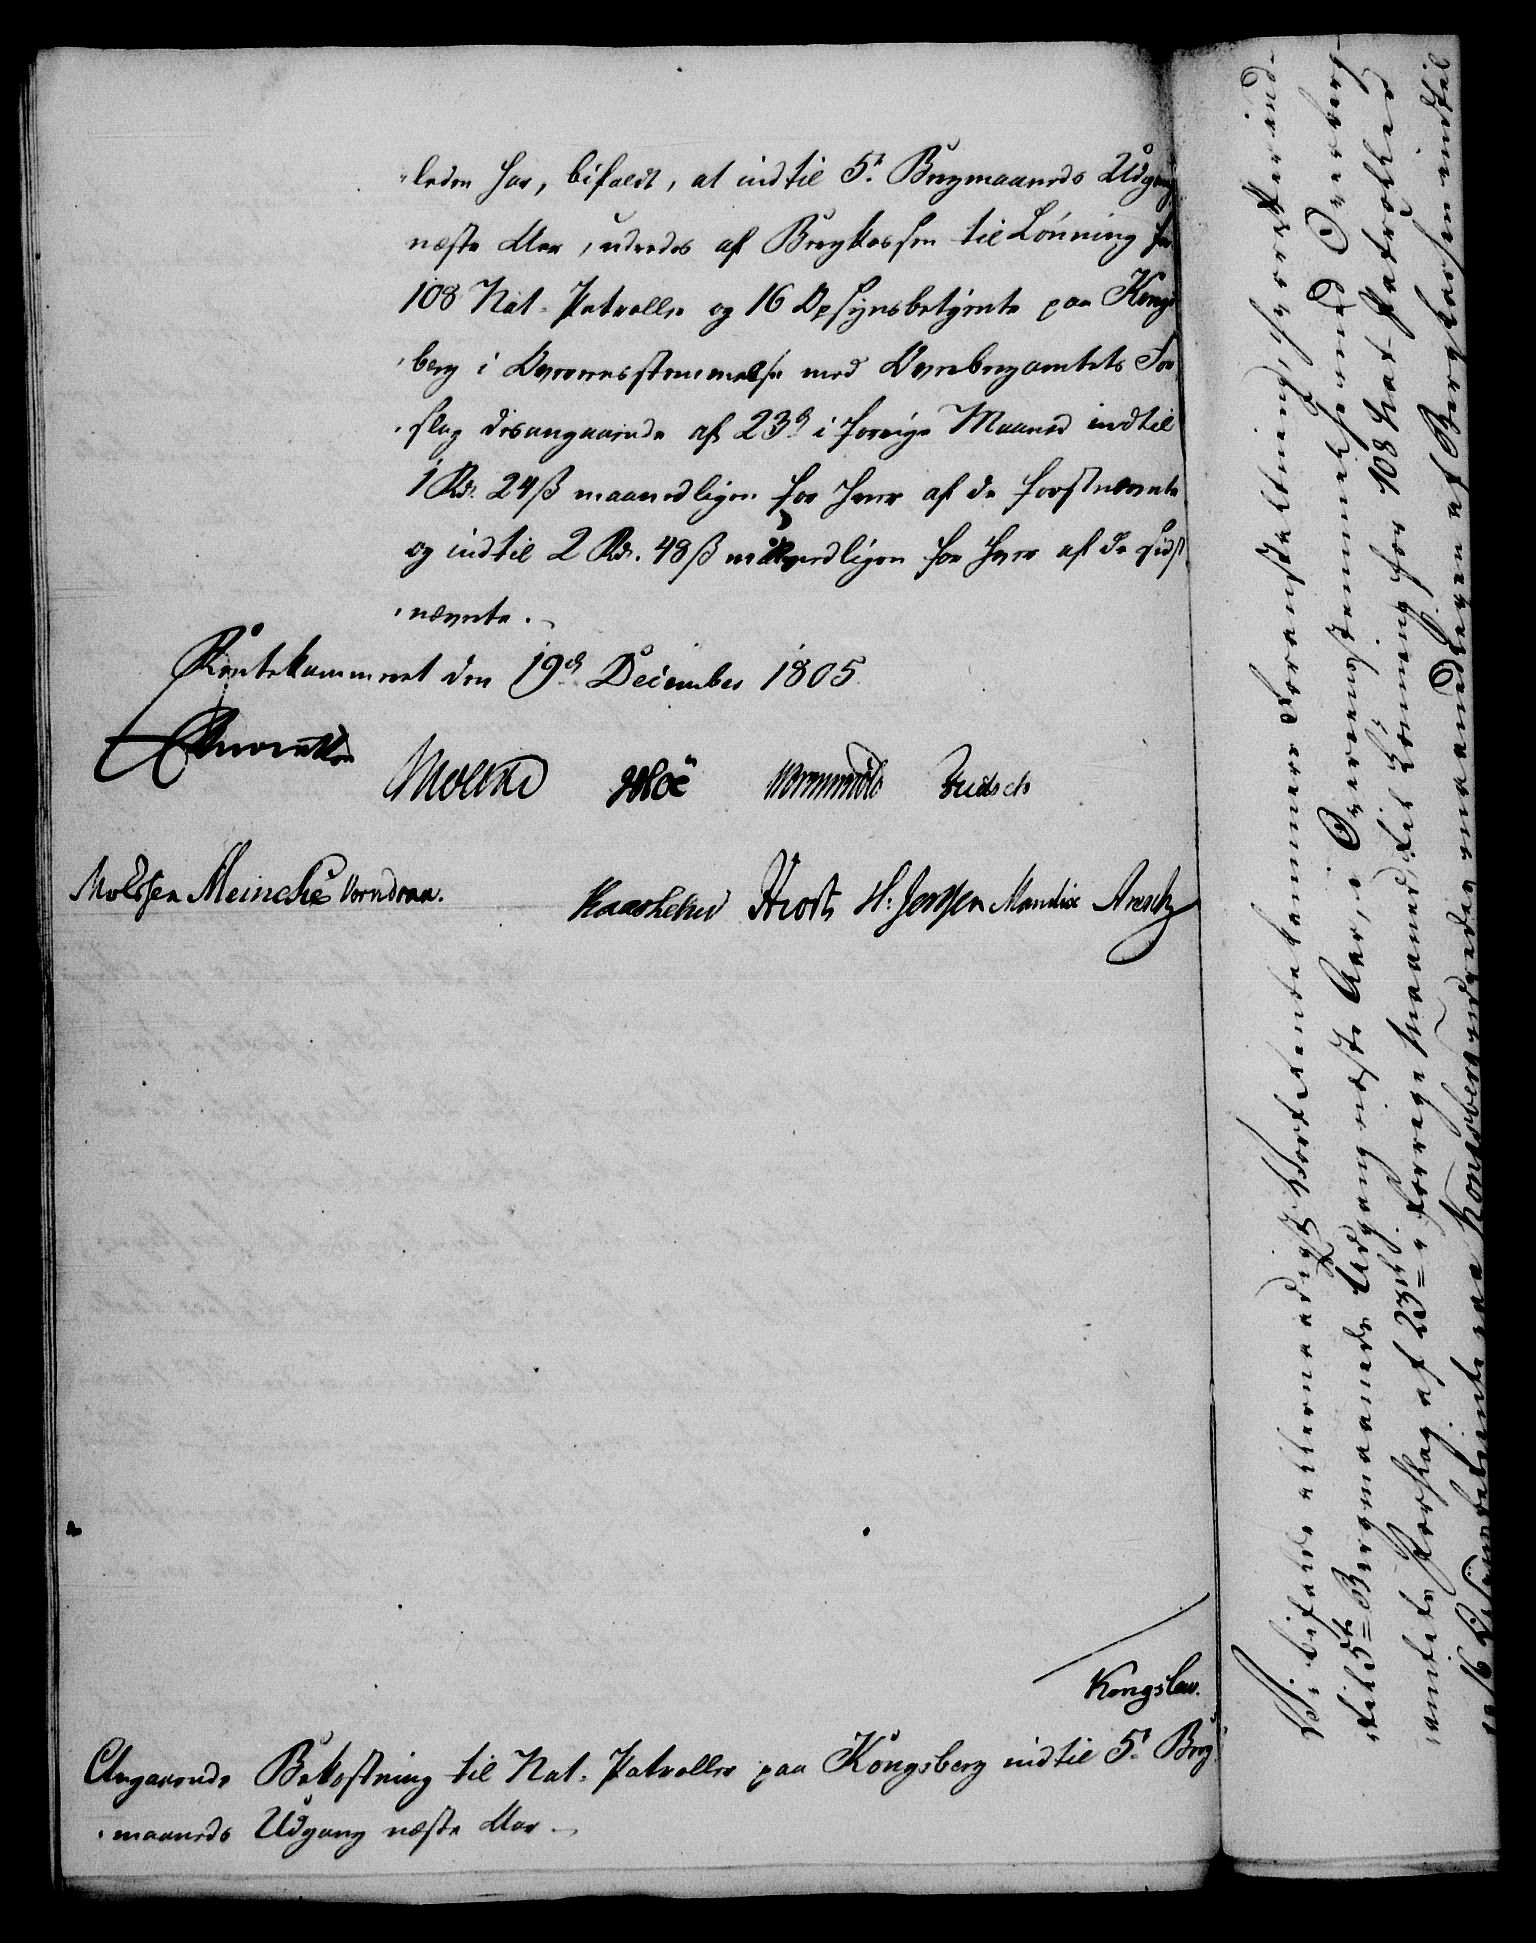 leden har, bifaldt, at indtil 5t Bergmaaneds Udgang
næste Aar, udredes af Bergkassen til Lönning for
108 Nat-Patroller og 16 Opsynsbetjente paa Kongs-
berg i Overeensstemmelse med Overbergamtets For-
slag desangaaende af 23d i forrige Maaned indtil
1 Rd. 24 ß maanedligen for hver af de förstnævnte
og indtil 2 Rd. 48 ß maanedligen for hver af de sidst-
nævnte.
Rentekammeret den 19d December 1805
Moltke Wormskiold
Meincke Vorndran. Hiort H: Jenssen Mandix
Kongslew.
Angaaende Bekostning til Nat-Patroller paa Kongsberg indtil 5t Berg-
maaneds Udgang næste Aar.
Vi bifalde allernaadigst Vort Rentekammers Forestilling, herefter ind-
til 5te Bergmaaneds Udgang næste Aar, i Overeensstemmelse med Overberg-
amtets Forslag af 23de i forrige Maaned, til Lönning for 108 Nat-Patroller
og 16 Opsynsbetjente paa Kongsberg udredes maanedligen af Bergkassen indtil